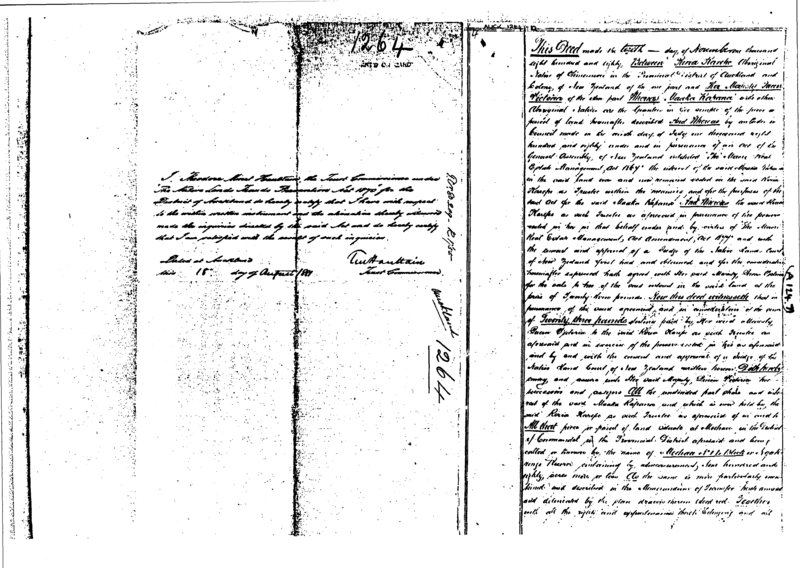 1264
I, Theodore Minet Haultain, the Trust Commissioner under
The Native Lands Frauds Prevention Act 1870 for the
District of Auckland do hereby certify that I have with respect
to the within written instrument and the alienation thereby witnessed
made the inquiries directed by the said Act and do hereby certify
that I am satisfied with the result of such inquiries.
Dated at Auckland
this 15 day of August 1881
TM Haultain
Trust Commissioner
1264
This Deed made the tenth day of November one thousand
eight hundred and eighty Between Keria Karepe Aboriginal
Native of Ohinemuri in the Provincial District of Auckland and
Colony of New Zealand of the one part and Her Majesty Queen
Victoria of the other part Whereas Maaka and other
Aboriginal Natives are the Grantees in fee simple of the piece or
parcel of land hereinafter described And Whereas by an Order in
Council made on the ninth day of July one thousand eight
hundred and eighty under and in pursuance of an Act of the
General Assembly of New Zealand intituled "The Maori Real
Estate Management Act 1867" the interest of the said Maaka
in the said land was and now remains vested in the said Keria
Karepe as Trustee within the meaning and for the purposes of the
said Act for the said Maaka And Whereas the said Keria
Karepe as such Trustee as aforesaid in pursuance of the power
vested in her in that behalf under and by virtue of The Maori
Real Estate Management Act Amendment Act 1877 and with
the consent and approval of a Judge of the Native Land Court
of New Zealand first had and obtained and for the consideration
hereinafter expressed hath agreed with Her said Majesty Queen Victoria
for the sale to her of the said interest in the said land at the
price of Twenty three pounds Now this deed witnesseth that in
pursuance of the said agreement and in consideration of the sum
of Twenty three pounds sterling paid by Her said Majesty
Queen Victoria to the said Keria Karepe as such Trustee as
aforesaid and in exercise of the power vested in her as aforesaid
and by and with the consent and approval of a Judge of the
Native Land Court of New Zealand written hereon Doth hereby
convey and assure unto Her said Majesty Queen Victoria her
successors and assigns All the undivided part share and inter
est of the said Maaka and which is now held by the
said Keria Karepe as such Trustee as aforesaid of in and to
All that piece or parcel of land situate at in the District
of Coromandel in the Provincial District aforesaid and being
called or known by the name of Block or
Reserve containing by admeasurement hundred and
eighty acres more or less As the same is more particularly men
tioned and described in the Memorandum of Transfer
and delineated by the plan drawn thereon Together
with all the rights and appurtenances thereto belonging and all